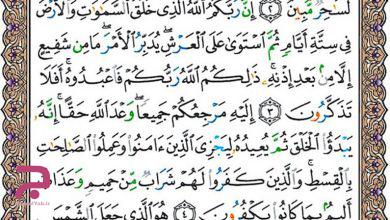 لَسَٰحِرٌ مُّبِينٌ ٢ إِنَّ رَبَّكُمُ ٱللَّهُ ٱلَّذِي خَلَقَ ٱلسَّمَٰوَٰتِ وَٱلْأَرْضَ
فِي سِتَّةِ أَيَّامٍ ثُمَّ ٱسْتَوَىٰ عَلَى ٱلْعَرْشِ يُدَبِّرُ ٱلْأَمْرَ مَا مِن شَفِيعٍ
إِلَّا مِنۢ بَعْدِ إِذْنِهِۦ ذَٰلِكُمُ ٱللَّهُ رَبُّكُمْ فَٱعْبُدُوهُ أَفَلَا
تَذَكَّرُونَ ٣ إِلَيْهِ مَرْجِعُكُمْ جَمِيعًا وَعْدَ ٱللَّهِ حَقًّا إِنَّهُۥ
يَبْدَؤُا۟ ٱلْخَلْقَ ثُمَّ يُعِيدُهُۥ لِيَجْزِيَ ٱلَّذِينَ ءَامَنُوا۟ وَعَمِلُوا۟ ٱلصَّٰلِحَٰتِ
بِٱلْقِسْطِ وَٱلَّذِينَ كَفَرُوا۟ لَهُمْ شَرَابٌ مِّنْ حَمِيمٍ وَعَذَابٌ
أَلِيمٌۢ بِمَا كَانُوا۟ يَكْفُرُونَ ٤ هُوَ ٱلَّذِي جَعَلَ ٱلشَّمْسَ